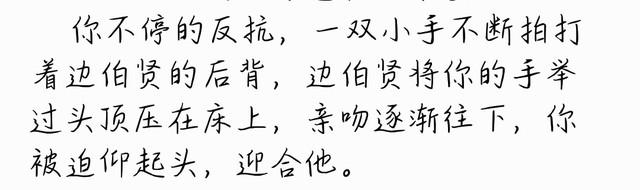 你不停的反抗，一双小手不断拍打
着边伯贤的后背，边伯贤将你的手举
过头顶压在床上，亲吻逐渐往下，你
被迫仰起头，迎合他。